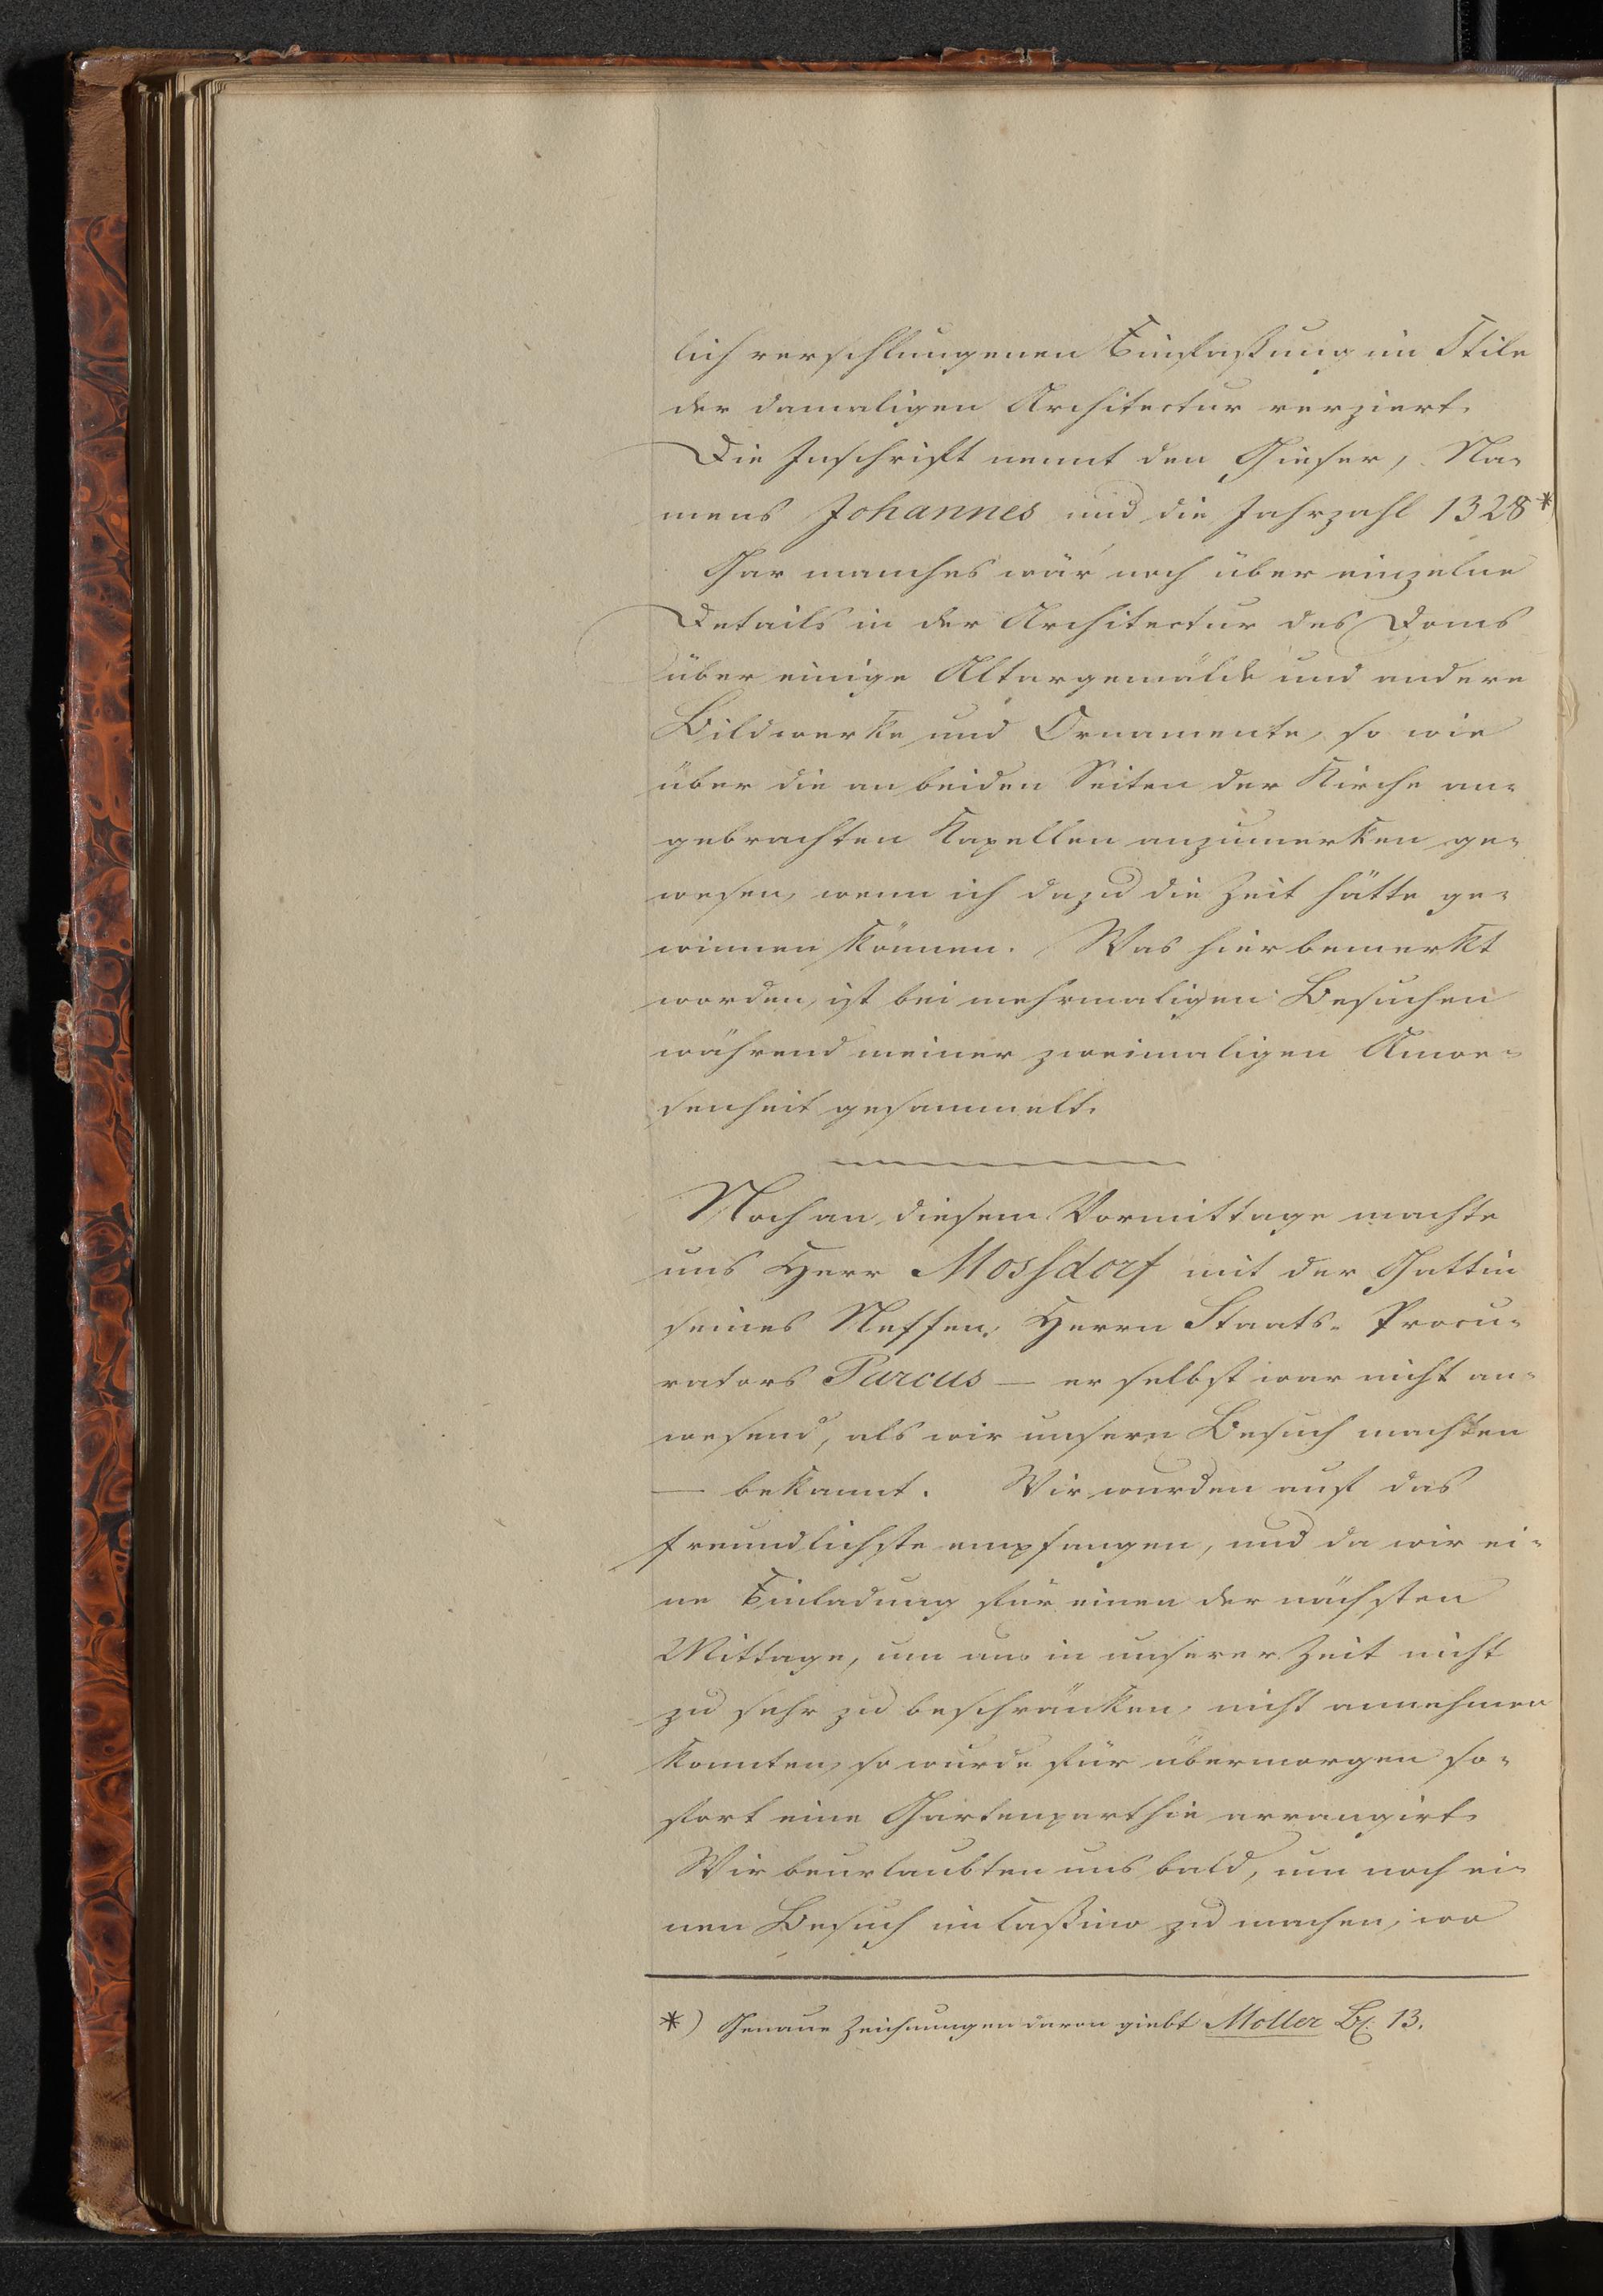 lich verschlungenen Einfaßung im Stile
der damaligen Architectur verziert.
Die Inschrift nennt den Gieser, Na-
mens Johannes und die Jahrzahl 1328 *)
Gar manches wär noch über einzelne
Details in der Architectur des Doms
über einige Altargemälde und andere
Bildwerke und Ornamente, so wie
über die an beiden Seiten der Kirche an-
gebrachten Kapellen anzumerken ge-
wesen, wenn ich dazu die Zeit hätte ge-
winnen können. Was hier bemerkt
worden, ist bei mehrmaligen Besuchen
während meiner zweimaligen Anwe-
senheit gesammelt.
Noch an diesem Vormittage machte
uns Herr Mossdorf mit der Gattin
seines Neffen, Herrn Staats-Procu-
rators Parcus — er selbst war nicht an-
wesend, als wir unsern Besuch machten
— bekannt. Wir wurden auf das
freundlichste empfangen, und da wir ei-
ne Einladung für einen der nächsten
Mittage, um uns in unserer Zeit nicht
zu sehr zu beschränken, nicht annehmen
konnten, so wurde für übermorgen so-
fort eine Gartenparthie arrangirt.
Wir beurlaubten uns bald, um noch ei-
nen Besuch im Cassino zu machen, wo
*) Genaue Zeichnungen davon giebt Moller Bl. 13.